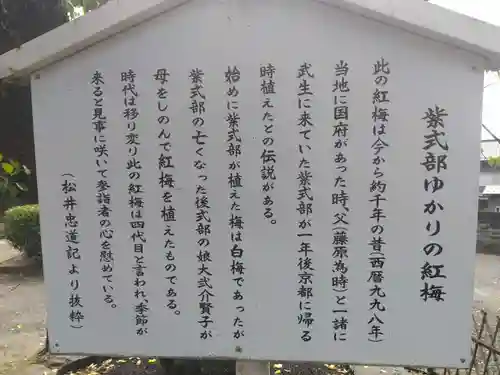 紫式部ゆかりの紅梅
此の紅梅は今から約千年の昔(西暦九九八年)
当地に国府があった時、父(藤原為時)と一諸に
武生に来ていた紫式部が一年後京都に帰る
時植えたとの伝説がある。
始めに紫式部が植えた梅は白梅であったが
紫式部の亡くなった後式部の娘大弐介賢子が
母をしのんで紅梅を植えたものである。
時代は移り変り此の紅梅は四代目と言われ、季節が
来ると見事に咲いて参詣者の心を慰めている。
(松井忠道記より抜粋)